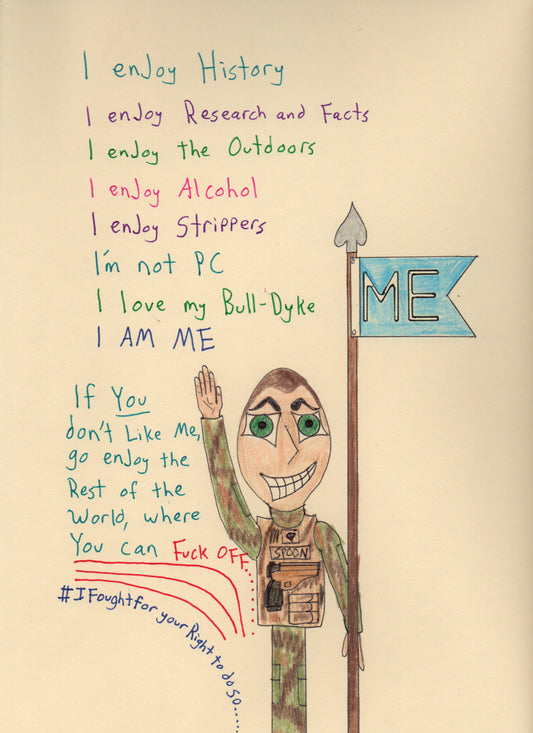 I enJoy History
I enJoy Research and Facts
I enJoy the Outdoors
I enJoy Alcohol
I enJoy Strippers
I'm not PC
I love my Bull-Dyke
I AM ME
ME
If You
don't Like Me,
go enJoy the
Rest of the
World, where
You can Fuck OFF...
SPOON
#IFoughtforyourRighttodoSO.....